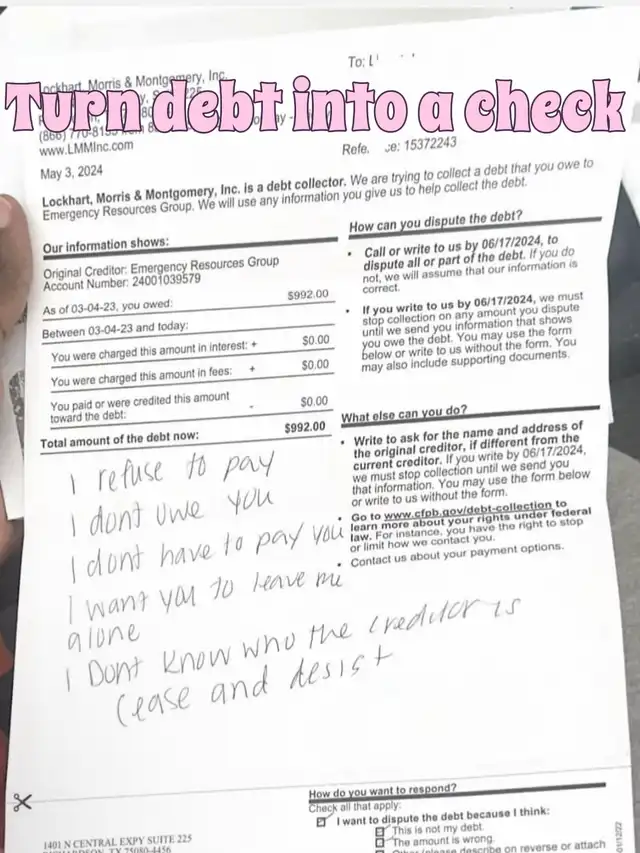 To: L
Lockhart, Morris & Montgomery, Inc.
Turn debt into a check
(866) 770-815
www.LMMInc.com
15372243
May 3, 2024
Lockhart, Morris & Montgomery, Inc. is a debt collector. We are trying to collect a debt that you owe to
Emergency Resources Group. We will use any information you give us to help collect the debt.
Our information shows:
Original Creditor: Emergency Resources Group
Account Number: 24001039579
As of 03-04-23, you owed: $992.00
Between 03-04-23 and today:
You were charged this amount in interest: + $0.00
You were charged this amount in fees: + $0.00
You paid or were credited this amount
toward the debt: - $0.00
Total amount of the debt now: $992.00
I refuse to pay
I dont owe you
I dont have to pay you
I want you to leave me
alone
I Dont know who the creditor is
Cease and desist
How can you dispute the debt?
• Call or write to us by 06/17/2024, to
dispute all or part of the debt. If you do
not, we will assume that our information is
correct.
• If you write to us by 06/17/2024, we must
stop collection on any amount you dispute
until we send you information that shows
you owe the debt. You may use the form
below or write to us without the form. You
may also include supporting documents.
What else can you do?
• Write to ask for the name and address of
the original creditor, if different from the
current creditor. If you write by 06/17/2024,
we must stop collection until we send you
that information. You may use the form below
or write to us without the form.
• Go to www.cfpb.gov/debt-collection to
learn more about your rights under federal
law. For instance, you have the right to stop
or limit how we contact you.
• Contact us about your payment options.
How do you want to respond?
Check all that apply:
I want to dispute the debt because I think:
This is not my debt.
The amount is wrong.
describe on reverse or attach
1401 N CENTRAL EXPY SUITE 225
TX 75080-4456